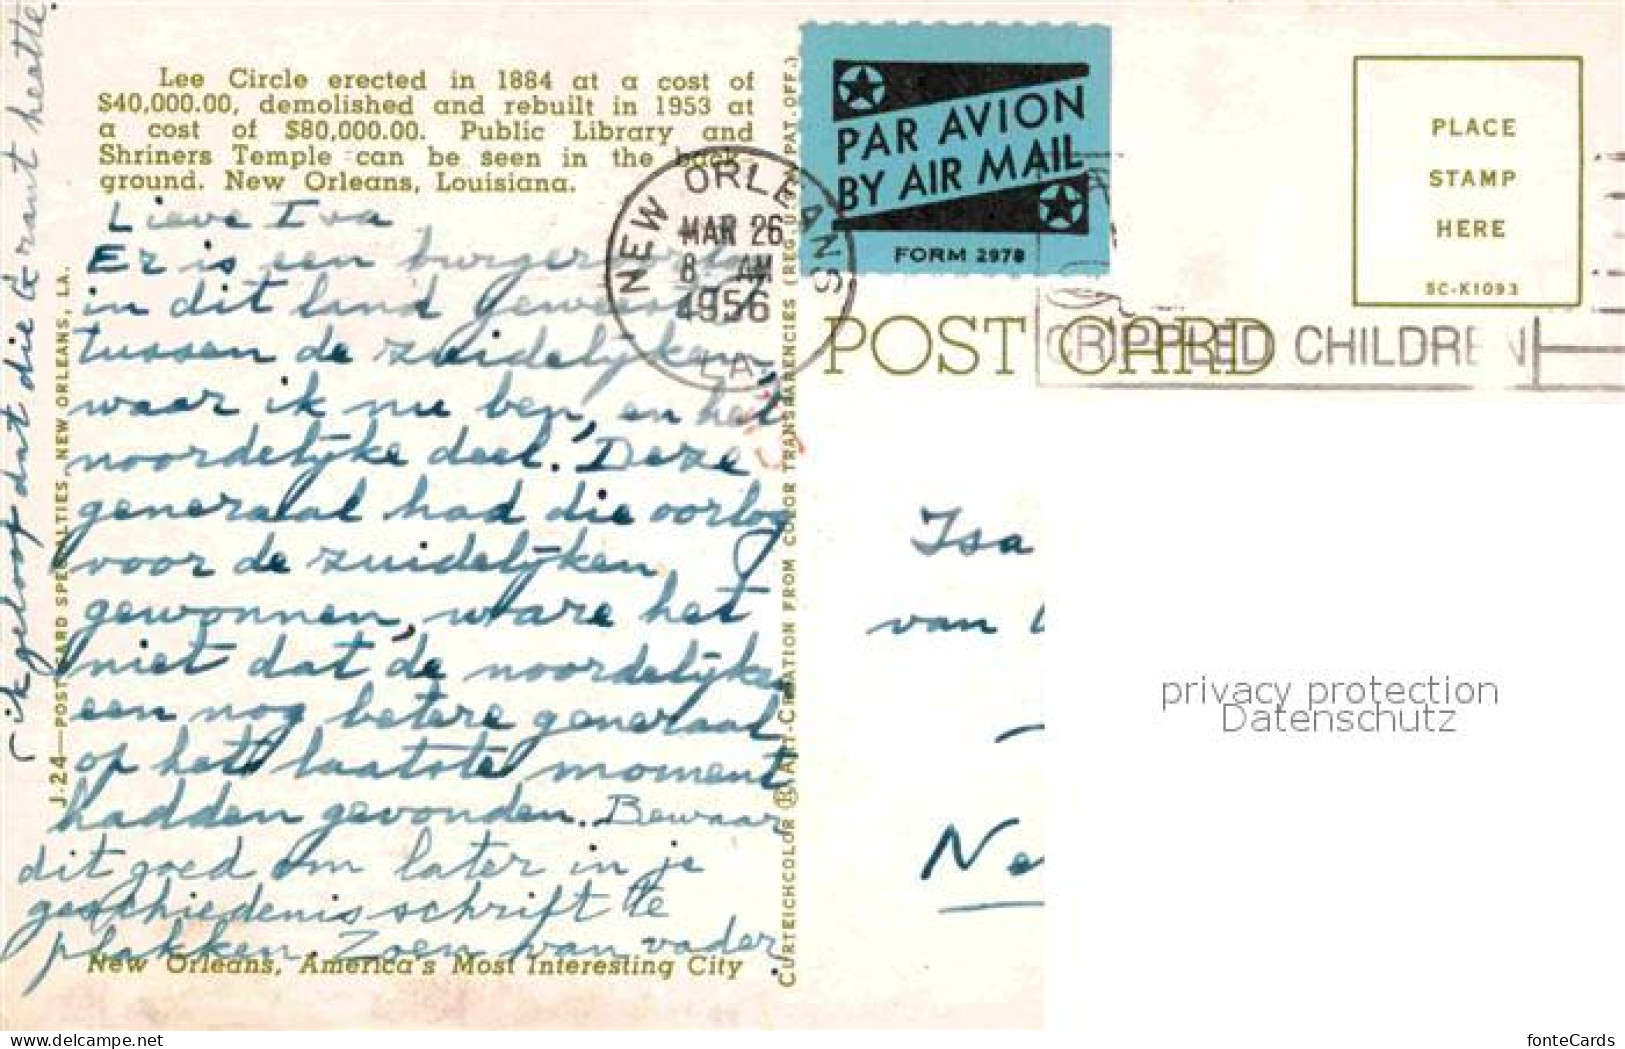 Lee Circle erected in 1884 at a cost of
$40,000.00, demolished and rebuilt in 1953 at
a cost of $80,000.00. Public Library and
Shriners Temple can be seen in the back-
ground. New Orleans, Louisiana.
Lieve Isa
Er is een burgeroorlog
in dit land geweest
tussen de zuidelijken,
waar ik nu ben, en het
noordelijke deel. Deze
generaal had die oorlog
voor de zuidelijken
gewonnen, ware het
niet dat de noordelijken
een nog betere generaal
op het laatste moment
hadden gevonden. Bewaar
dit goed om later in je
geschiedenisschrift te
plakken. Zoen van vader.
ik geloof dat die Grant heette.
New Orleans, America's Most Interesting City
J.24—POST CARD SPECIALTIES, NEW ORLEANS, LA.
CURTEICHCOLOR ® ART-CREATION FROM COLOR TRANSPARENCIES (REG. U.S. PAT. OFF.)
NEW ORLEANS
MAR 26
8 AM
1956
LA.
PAR AVION
BY AIR MAIL
FORM 2978
PLACE
STAMP
HERE
SC-K1093
POST CARD
CRIPPLED CHILDREN
Isa
van
Ne
privacy protection
Datenschutz
www.delcampe.net
fonteCards